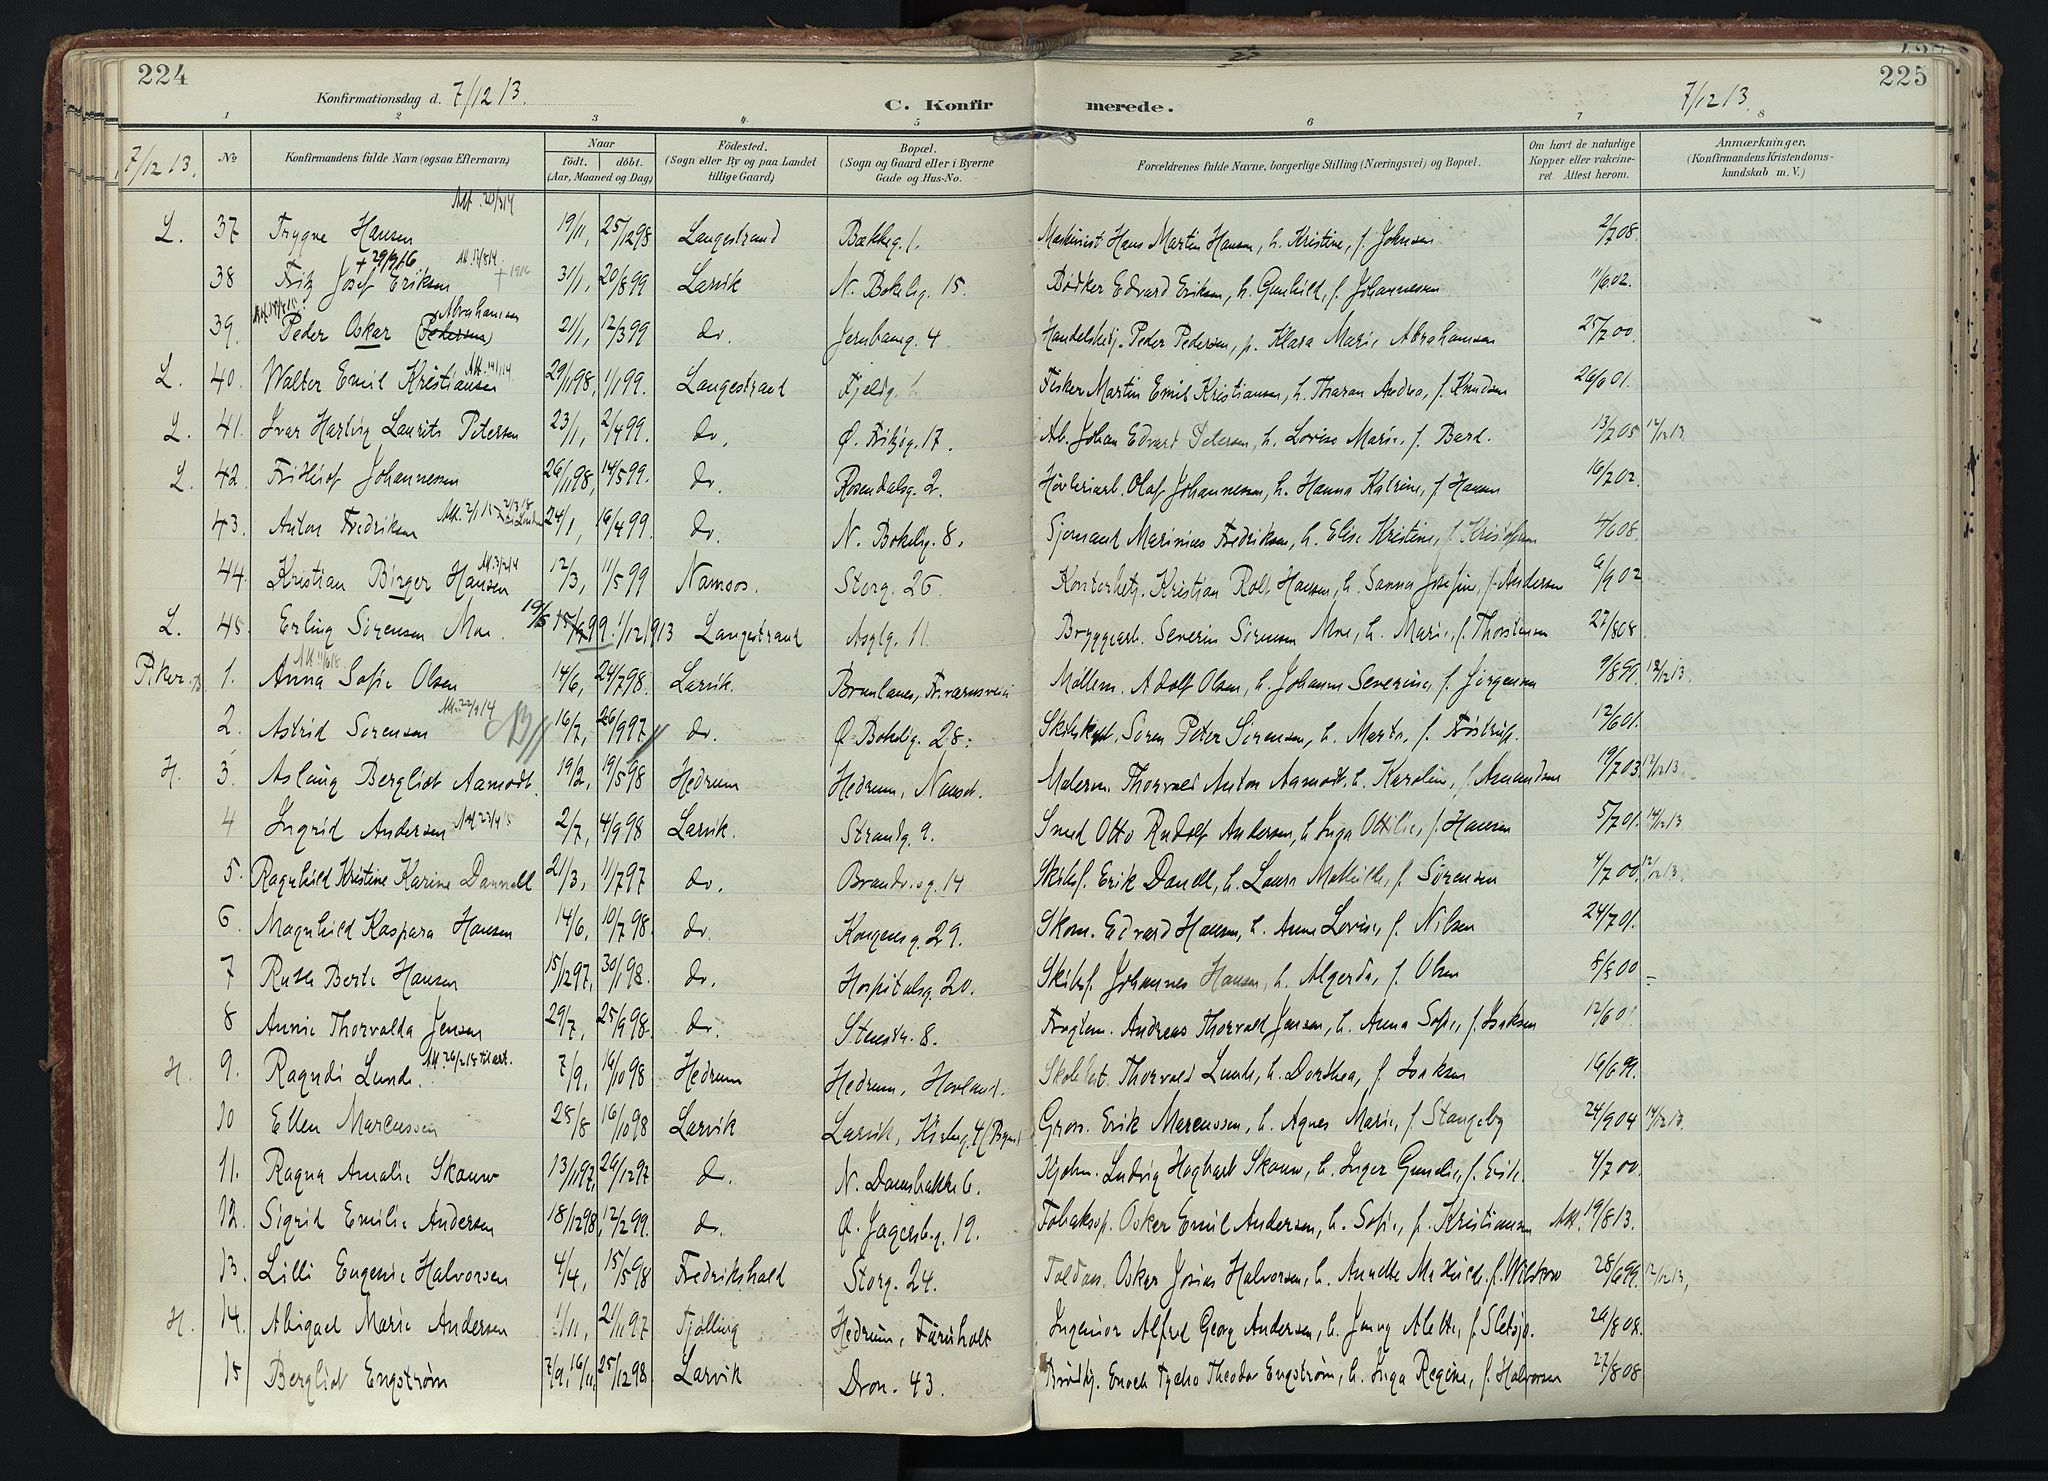 224
Konfirmationsdag d. 7/12 13.
C. Konfirmerede.
7/12 13.
225
1 2 3 4 5 6 7 8
7/12 13.
No
Konfirmandens fulde Navn (ogsaa Efternavn)
Naar
födt. döbt.
(Aar, Maaned og Dag)
Födested.
(Sogn eller By og paa Landet tillige Gaard)
Bopæl.
(Sogn og Gaard eller i Byerne Gade og Hus-No.
Forældrenes fulde Navne, borgerlige Stilling (Næringsvei) og Bopæl.
Om havt de naturlige Kopper eller vakcineret. Attest herom.
Anmærkninger.
(Konfirmandens Kristendomskundskab m. V.)
L. 37 Trygve Hansen 19/11, 25/12 98 Langestrand Bakkeg. 1. Maskinist Hans Martin Hansen, h. Kristine, f. Johnsen 2/7 08.
38 Fritz Josef Eriksen + 29/9/16 + 1916 31/1, 20/8 99 Larvik N. Bokelig. 15. Bödker Edvard Eriksen, h. Gunhild, f. Johannessen 11/6 02.
39. Peder Oskar (Pedersen) Abrahamsen 21/1, 12/3 99 do. Jernbaneg. 4 Handelsbetj. Peder Pedersen, p. Klara Marie Abrahamsen 25/7 00.
L. 40. Walter Emil Kristiansen 29/11 98, 1/1 99. Langestrand Fjeldg. Fisker Martin Emil Kristiansen, h. Tharan Andrea, f. Knudsen 26/6 01.
L. 41. Ivar Harling Laurits Petersen 23/1, 2/4 99. do. Ø. Fritzög. 17. Ab. Johan Edvard Petersen, h. Lovise Marie, f. Berd. 13/7 05 12/12 13.
L. 42. Frithiof Johannessen 26/11 98, 14/5 99. do. Rosendalsg. 2. Høvleriarb. Olaf Johannessen, h. Hanna Katrine, f. Hansen 16/7 02.
43. Anton Fredriksen 24/1, 16/4 99. do. N. Bokelig. 8. Sjømand Marinius Fredriksen, h. Elise Kristine, f. Kristofersen 4/6 08.
44. Kristian Birger Hansen 12/3, 11/5 99 Namsos. Storg. 26. Kontorbetj. Kristian Rolf Hansen, h. Sanna Josefine, f. Andersen 6/9 02
L. 45. Erling Sörensen Moe. 19/5 15/6 99. 1/12 1913 Langestrand 11. Bryggearb. Severin Sörensen Moe, h. Marie, f. Thorstensen 27/8 08.
Piker. 1. Anna Sofie Olsen 14/6, 24/7 98. Larvik. Brunlanes, Møllem. Adolf Olsen, h. Johanne Severine, f. Jörgensen 9/8 99. 12/12 13.
2. Astrid Sörensen 16/7, 26/9 97 do. Ø. Bokelig. 28. Sören Peter Sörensen, h. Marta, f. Tröstrup. 12/6 01.
H. 3. Aslaug Bergliot Aamodt. 19/2, 19/5 98 Hedrum Hedrum, Nanset. Malerm. Thorvald Anton Aamodt, h. Karoline, f. Amundsen 19/7 03. 12/12 13.
4 Ingrid Andersen 2/7, 4/9 98 Larvik. Strandg. 9. Smed Otto Rudolf Andersen, h. Inga Ottilie, f. Hansen 5/7 01. 14/12 13.
5. Ragnhild Kristine Karine Dannell 21/3, 11/7 97 do. 14 Skibsf. Erik Danell, h. Laura Mathilde, f. Sörensen 4/7 00. 12/12 13.
6. Magnhild Kaspara Hansen 14/6, 10/7 98. do. Kongensg. 29. Skom. Edvard Hansen, h. Anne Lovise, f. Nilsen 24/7 01.
7 Ruth Berte Hansen 15/12 97, 30/1 98. do. Hospitalsg. 20. Skibsf. Johannes Hansen, h. Algerda, f. Olsen 8/8 00
8 Annie Thorvalda Jensen 29/7, 25/9 98. do. Stenstr. 8. Andreas Thorvald Jensen, h. Anna Sofie, f. Isaksen 12/6 01
H. 9. Ragndi Lunde 7/9, 16/10 98 Hedrum Hedrum, Hovland. Thorvald Lunde, h. Dorthea, f. Isaksen 16/6 99.
10 Ellen Marcussen 28/8 16/10 98 Larvik Larvik, Kirkeg. 4 Gross. Erik Marcussen, h. Agnes Marie, f. Stangeby 24/9 04 14/12 13.
11. Ragna Amalie Skouw 13/11 97, 26/12 97 do. N. Damsbakke 6. Ludvig Hagbart Skouw, h. Inger Gunelie, f. Erik. 4/7 00.
12. Sigrid Emilie Andersen 18/12 98, 12/2 99. do. Ø. Jægersbg. 19. Tobakssp. Oskar Emil Andersen, h. Sofie, f. Kristiansen Att. 19/8 13.
13. Lilli Eugenie Halvorsen 4/4, 15/5 98 Fredrikshald Storg. 24. Toldass. Oskar Josias Halvorsen, h. Annette Mathilde, f. 28/6 99. 12/12 13.
H. 14. Abigael Marie Andersen 1/11, 21/11 97 Tjölling Hedrum, Farisholt Ingeniör Alfred Georg Andersen, h. Jenny Alette, f. Sletsjø. 26/8 08.
15 Bergliot Engström 7/9, 16/11, 25/12 98. Larvik Dron. 43. Enoch Tycho Theodor Engström, h. Inga Regine, f. Halvorsen 27/8 08